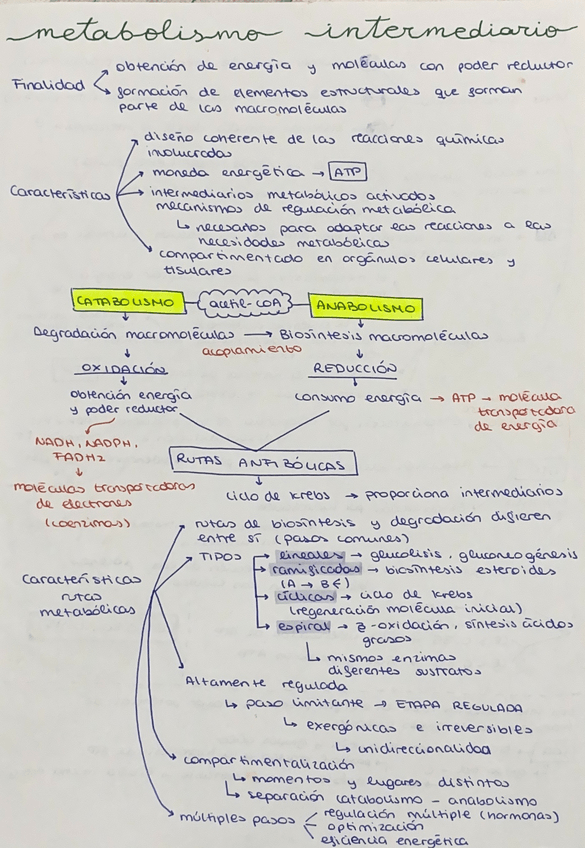 metabolismo intermediario
Finalidad
obtención de energía y moléculas con poder reductor
formación de elementos estructurales que forman
parte de las macromoléculas
Características
diseño coherente de las reacciones químicas
involucradas
moneda energética → ATP
intermediarios metabólicos activados
mecanismos de regulación metabólica
↳ necesarios para adaptar las reacciones a las
necesidades metabólicas
compartimentado en orgánulos celulares y
tisulares
CATABOLISMO acetil-COA ANABOLISMO
Degradación macromoléculas → Biosíntesis macromoléculas
acoplamiento
OXIDACIÓN REDUCCIÓN
obtención energía
y poder reductor
consumo energía → ATP → molécula
transportadora
de energía
NADH, NADPH,
FADH2
moléculas transportadoras
de electrones
(coenzimas)
RUTAS ANFIBÓLICAS
ciclo de krebs → proporciona intermediarios
Características
rutas
metabólicas
rutas de biosíntesis y degradación difieren
entre sí (pasos comunes)
TIPOS
lineales → glucolisis, gluconeogénesis
ramificadas → biosíntesis esteroides
(A → B
cíclicas → ciclo de krebs
(regeneración molécula inicial)
espiral → β-oxidación, síntesis ácidos
grasos
↳ mismos enzimas
diferentes sustratos
Altamente regulada
↳ paso limitante → ETAPA REGULADA
↳ exergónicas e irreversibles
↳ unidireccionalidad
compartimentalización
↳ momentos y lugares distintos
↳ separación catabolismo - anabolismo
múltiples pasos
regulación múltiple (hormonas)
optimización
eficiencia energética